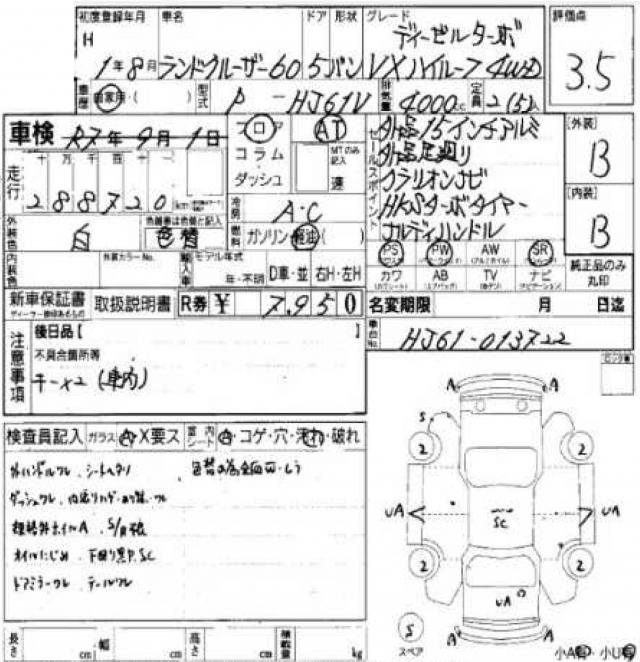 初度登録年月 車名 ドア 形状 グレード 評価点
H ディーゼルターボ
1年8月 ランドクルーザー60 5 バン VXハイルーフ 4WD 3.5
車歴 自家用・( ) 型式 P-HJ61V 排気量 4000cc 定員 2(5)人
車検 R7年9月1日 フロア AT セールスポイント 外品15インチアルミ [外装]
コラム MTのみ記入 外品足廻り B
走行 十万千百十一 ダッシュ 速 クラリオンナビ
288720 km 冷房 A・C HKSターボタイマー [内装]
外装色 白 色替車は色替と記入 色替 燃料 ガソリン・軽油( ) ナルディハンドル B
内装色 外装カラーNo. 輸入車 モデル年式 年・不明 D車・並 右H・左H PS PW AW SR 純正品のみ丸印
カワ AB TV ナビ
新車保証書 取扱説明書 R券 ¥ 7,950 名変期限 月 日迄
ディーラー捺印あるもの
車台No. HJ61-013722
注意事項 後日品[ ]
不具合箇所等
キーx2(車内)
検査員記入 ガラス A・X要ス 室内シート A・コゲ・穴・汚れ・破れ
外ハンドルワレ、シートヘタリ 色替の為全面W・ムラ
ダッシュワレ、
ドアミラーワレ、テールワレ
A A
S
2 2
UA SC UA
2 2
UA
S
スペア
A A
小A有 小U有
長さ cm 幅 cm 高さ cm 積載量 kg